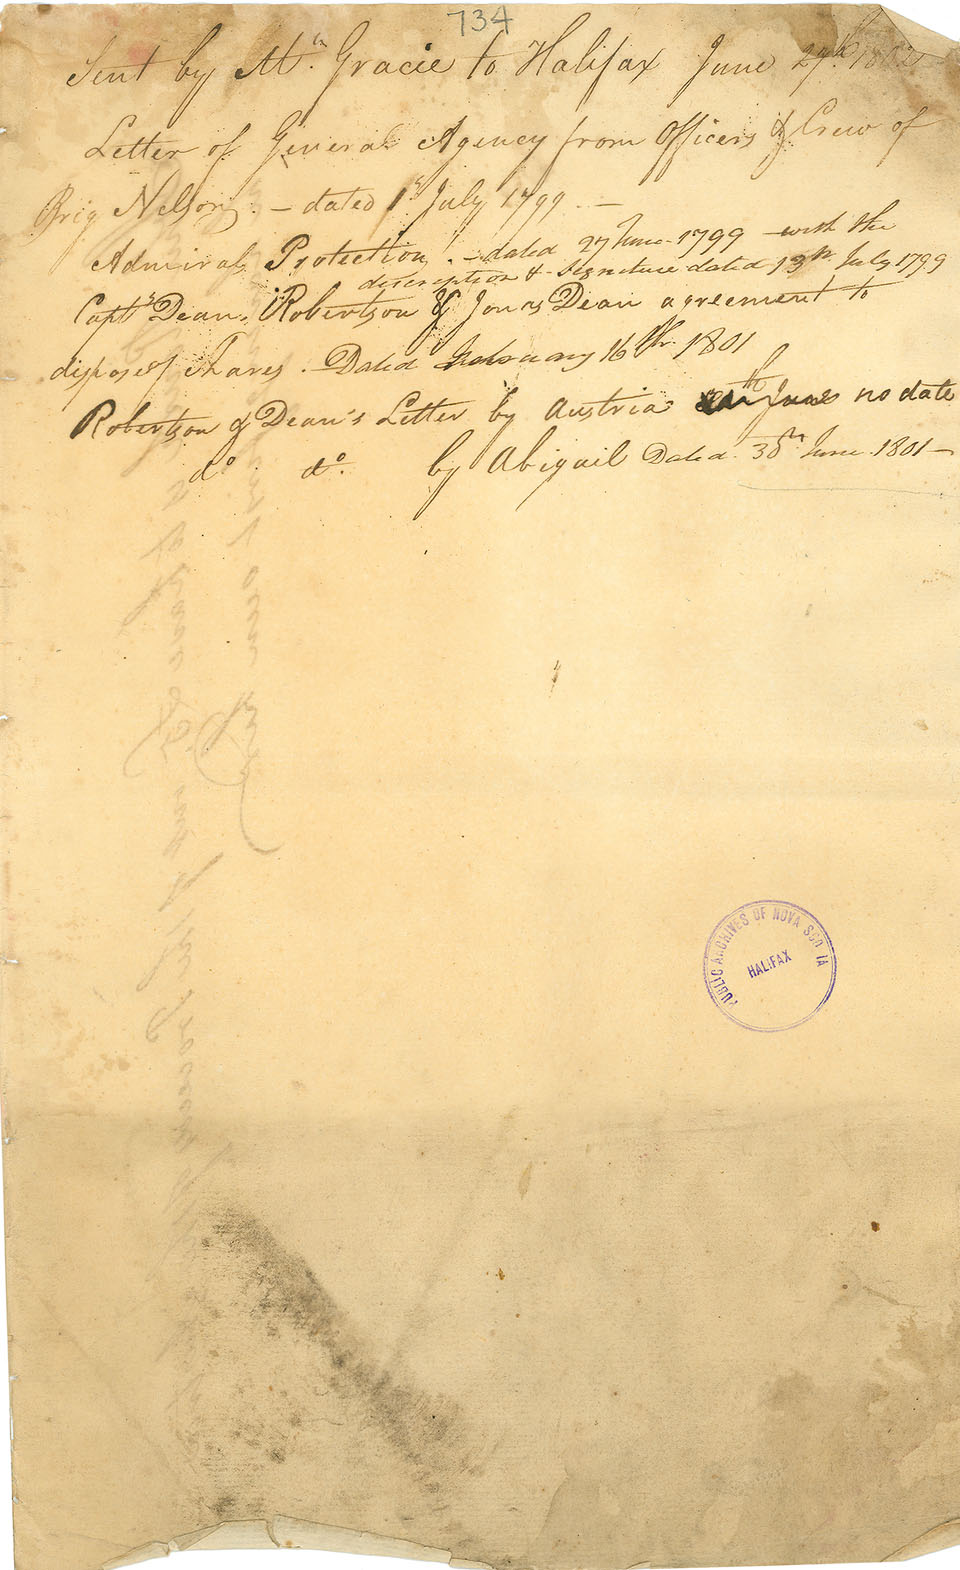 734
Sent by Mr. Gracie to Halifax June 29th 1802
Letter of General Agency from Officers & Crew of
Brig Nelson. — dated 1st July 1799. —
Admirals Protection. — dated 27 June 1799 — with the
discription & Signature dated 13th July 1799
Capts Dean, Robertson & Jonas Dean agreement to
dispose of Shares. — Dated February 16th 1801
Robertson & Dean's Letter by Austria no date
do do. by Abigail Dated 30th June 1801 —
PUBLIC ARCHIVES OF NOVA SCOTIA
HALIFAX